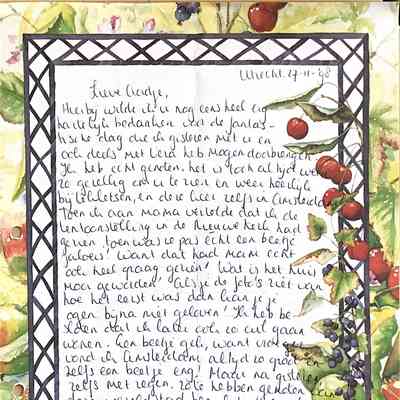 Utrecht, 27-11-'98
Lieve
Hierbij wilde ik u nog eens heel erg
hartelijk bedanken voor de fantas-
tische dag die ik gisteren met u en
ook deels met heb mogen doorbrengen.
Ik heb echt genoten. Het is toch altijd weer
zo gezellig om u te zien en weer heerlijk
bij te kletsen, en deze keer zelfs in Amsterdam!
Toen ik aan mama vertelde dat ik de
tentoonstelling in de Nieuwe Kerk had
gezien, toen was ze pas echt een beetje
jaloers! Want dat had mam echt
ook heel graag gezien! Wat is het huis
mooi geworden! Als je de foto's ziet van
hoe het eerst was dan kan je je
ogen bijna niet geloven! Ik heb be-
sloten dat ik later ook zo wil gaan
wonen. Een beetje gek, want vroeger
vond ik Amsterdam altijd zo groot en
zelfs een beetje eng! Maar na gisteren
zelfs met regen. Zoiets hebben